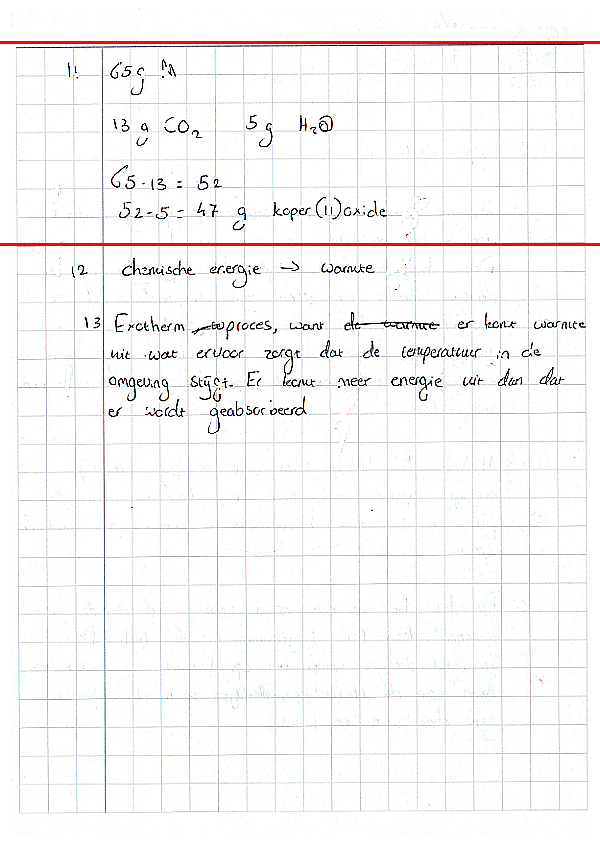 11 65 g
13 g CO2 5 g H2O
65-13 = 52
52-5 = 47 g koper(II)oxide
12 chemische energie → warmte
13 Exotherm proces, want de warmte er komt warmte
uit wat ervoor zorgt dat de temperatuur in de
omgeving stijgt. Er komt meer energie uit dan dat
er wordt geabsorbeerd